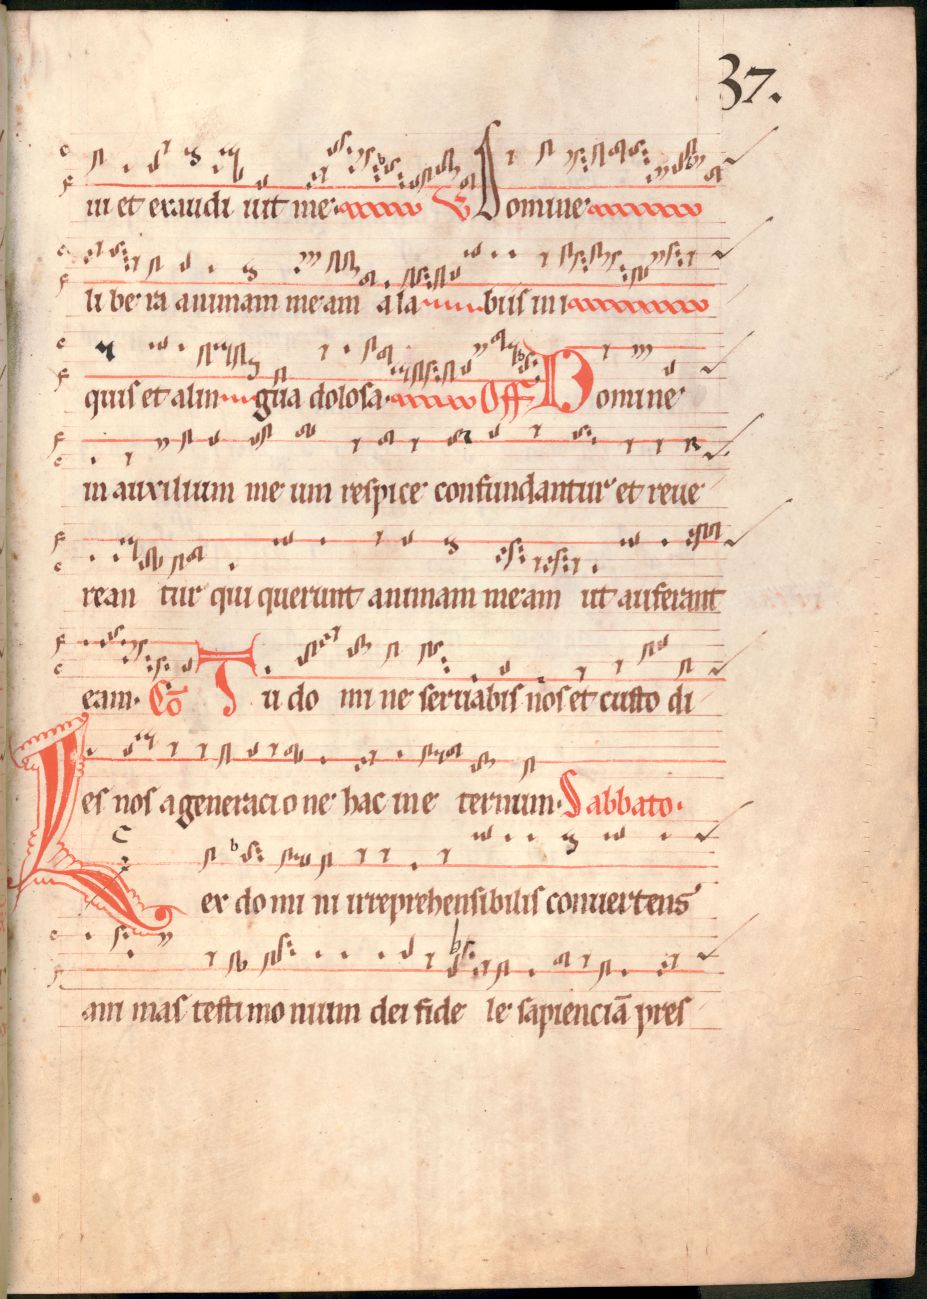 37.
ui et exaudi uit me. V Domine
li be ra animam meam a la biis ini
quis et a lin gua dolosa. Off Domine
in auxilium me um respice confundantur et reue
rean tur qui querunt animam meam ut auferant
eam. Co Tu do mi ne seruabis nos et custo di
es nos a generaci o ne hac in e ternum. Sabbato.
Lex do mi ni irreprehensibilis conuertens
ani mas testi mo nium dei fide le sapienciā pres